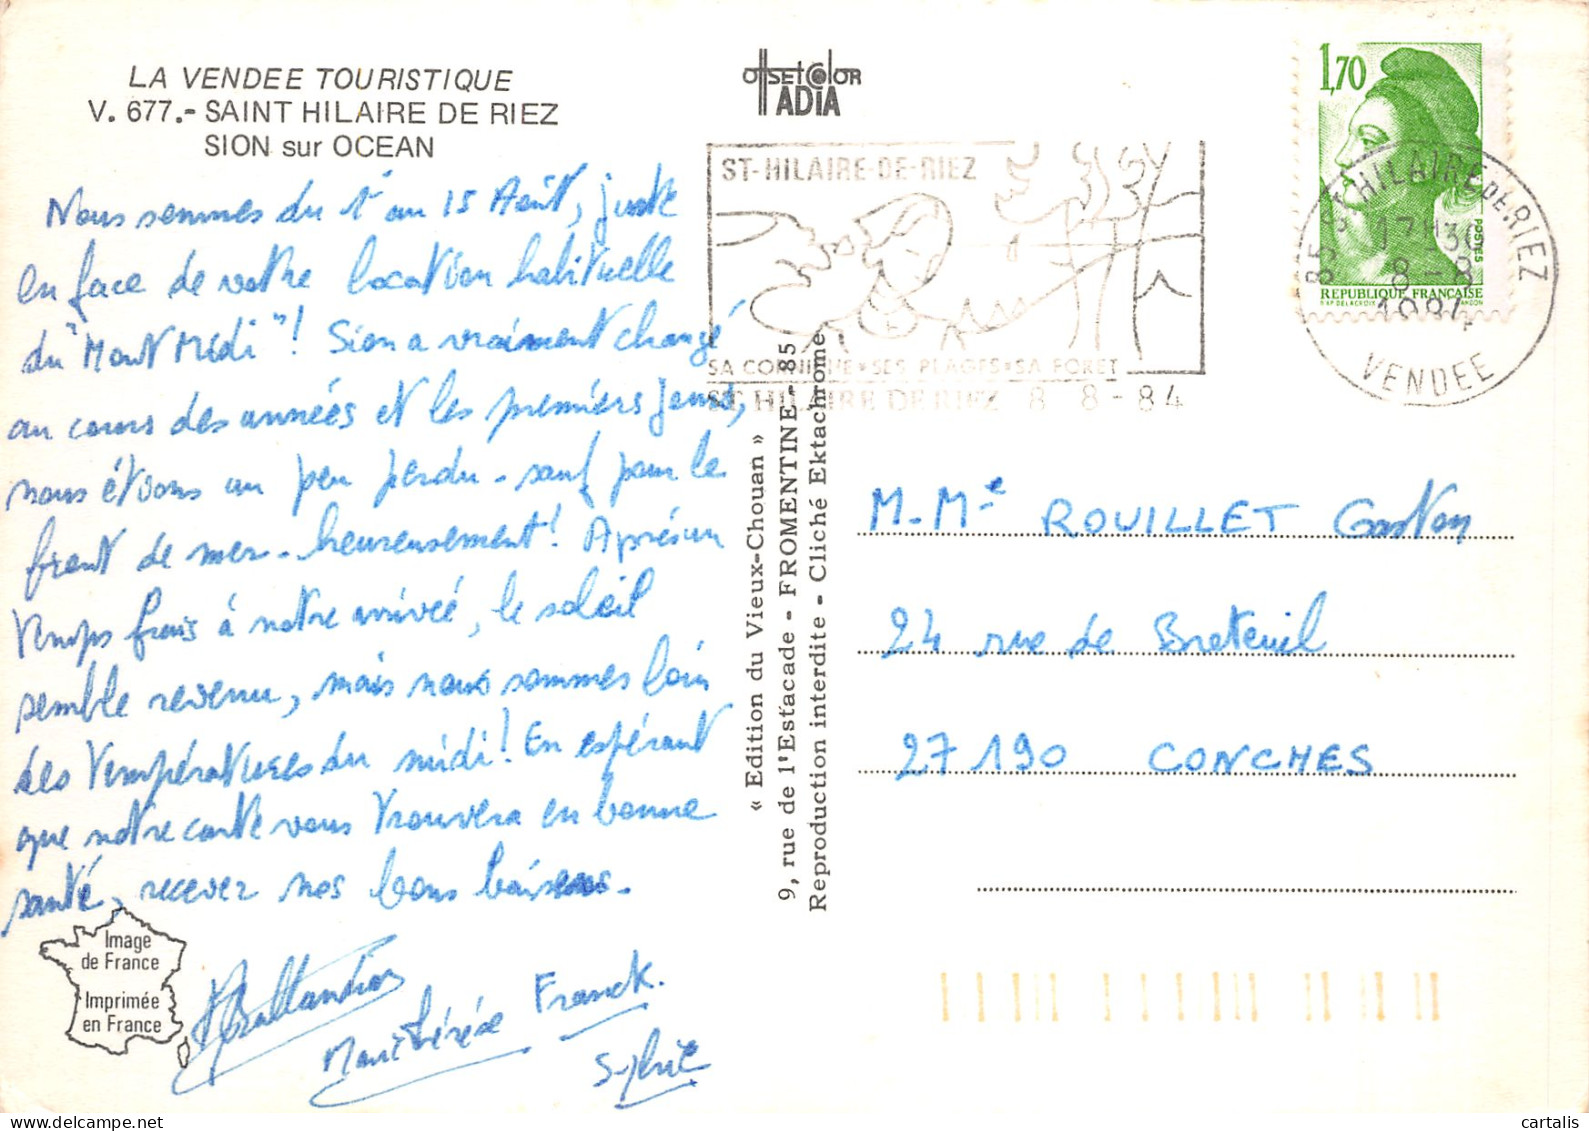 LA VENDEE TOURISTIQUE
V. 677.- SAINT HILAIRE DE RIEZ
SION sur OCEAN
Nous sommes du 1er au 15 Août, juste
en face de votre location habituelle
du "Mont Midi"! Sion a vraiment changé
au cours des années et les premiers jours,
nous étions un peu perdu - sauf pour le
front de mer - heureusement! Après un
temps frais à notre arrivée, le soleil
semble revenu, mais nous sommes loin
des températures du midi! En espérant
que notre carte vous trouvera en bonne
santé, recevez nos bons baisers.
Marithérèse Franck.
Sylvie
Image
de France
Imprimée
en France
OffsetColor
ADIA
« Edition du Vieux-Chouan »
9, rue de l'Estacade - FROMENTINE - 85
Reproduction interdite - Cliché Ektachrome
ST-HILAIRE-DE-RIEZ
SA CORNICHE • SES PLAGES • SA FORET
ST HILAIRE DE RIEZ 8 8 - 84
1,70
POSTES
REPUBLIQUE FRANÇAISE
85 ST HILAIRE DE RIEZ
17H30
8 - 8
1984
VENDEE
M. Me ROUILLET Gaston
24 rue de Breteuil
27190 CONCHES
cartalis